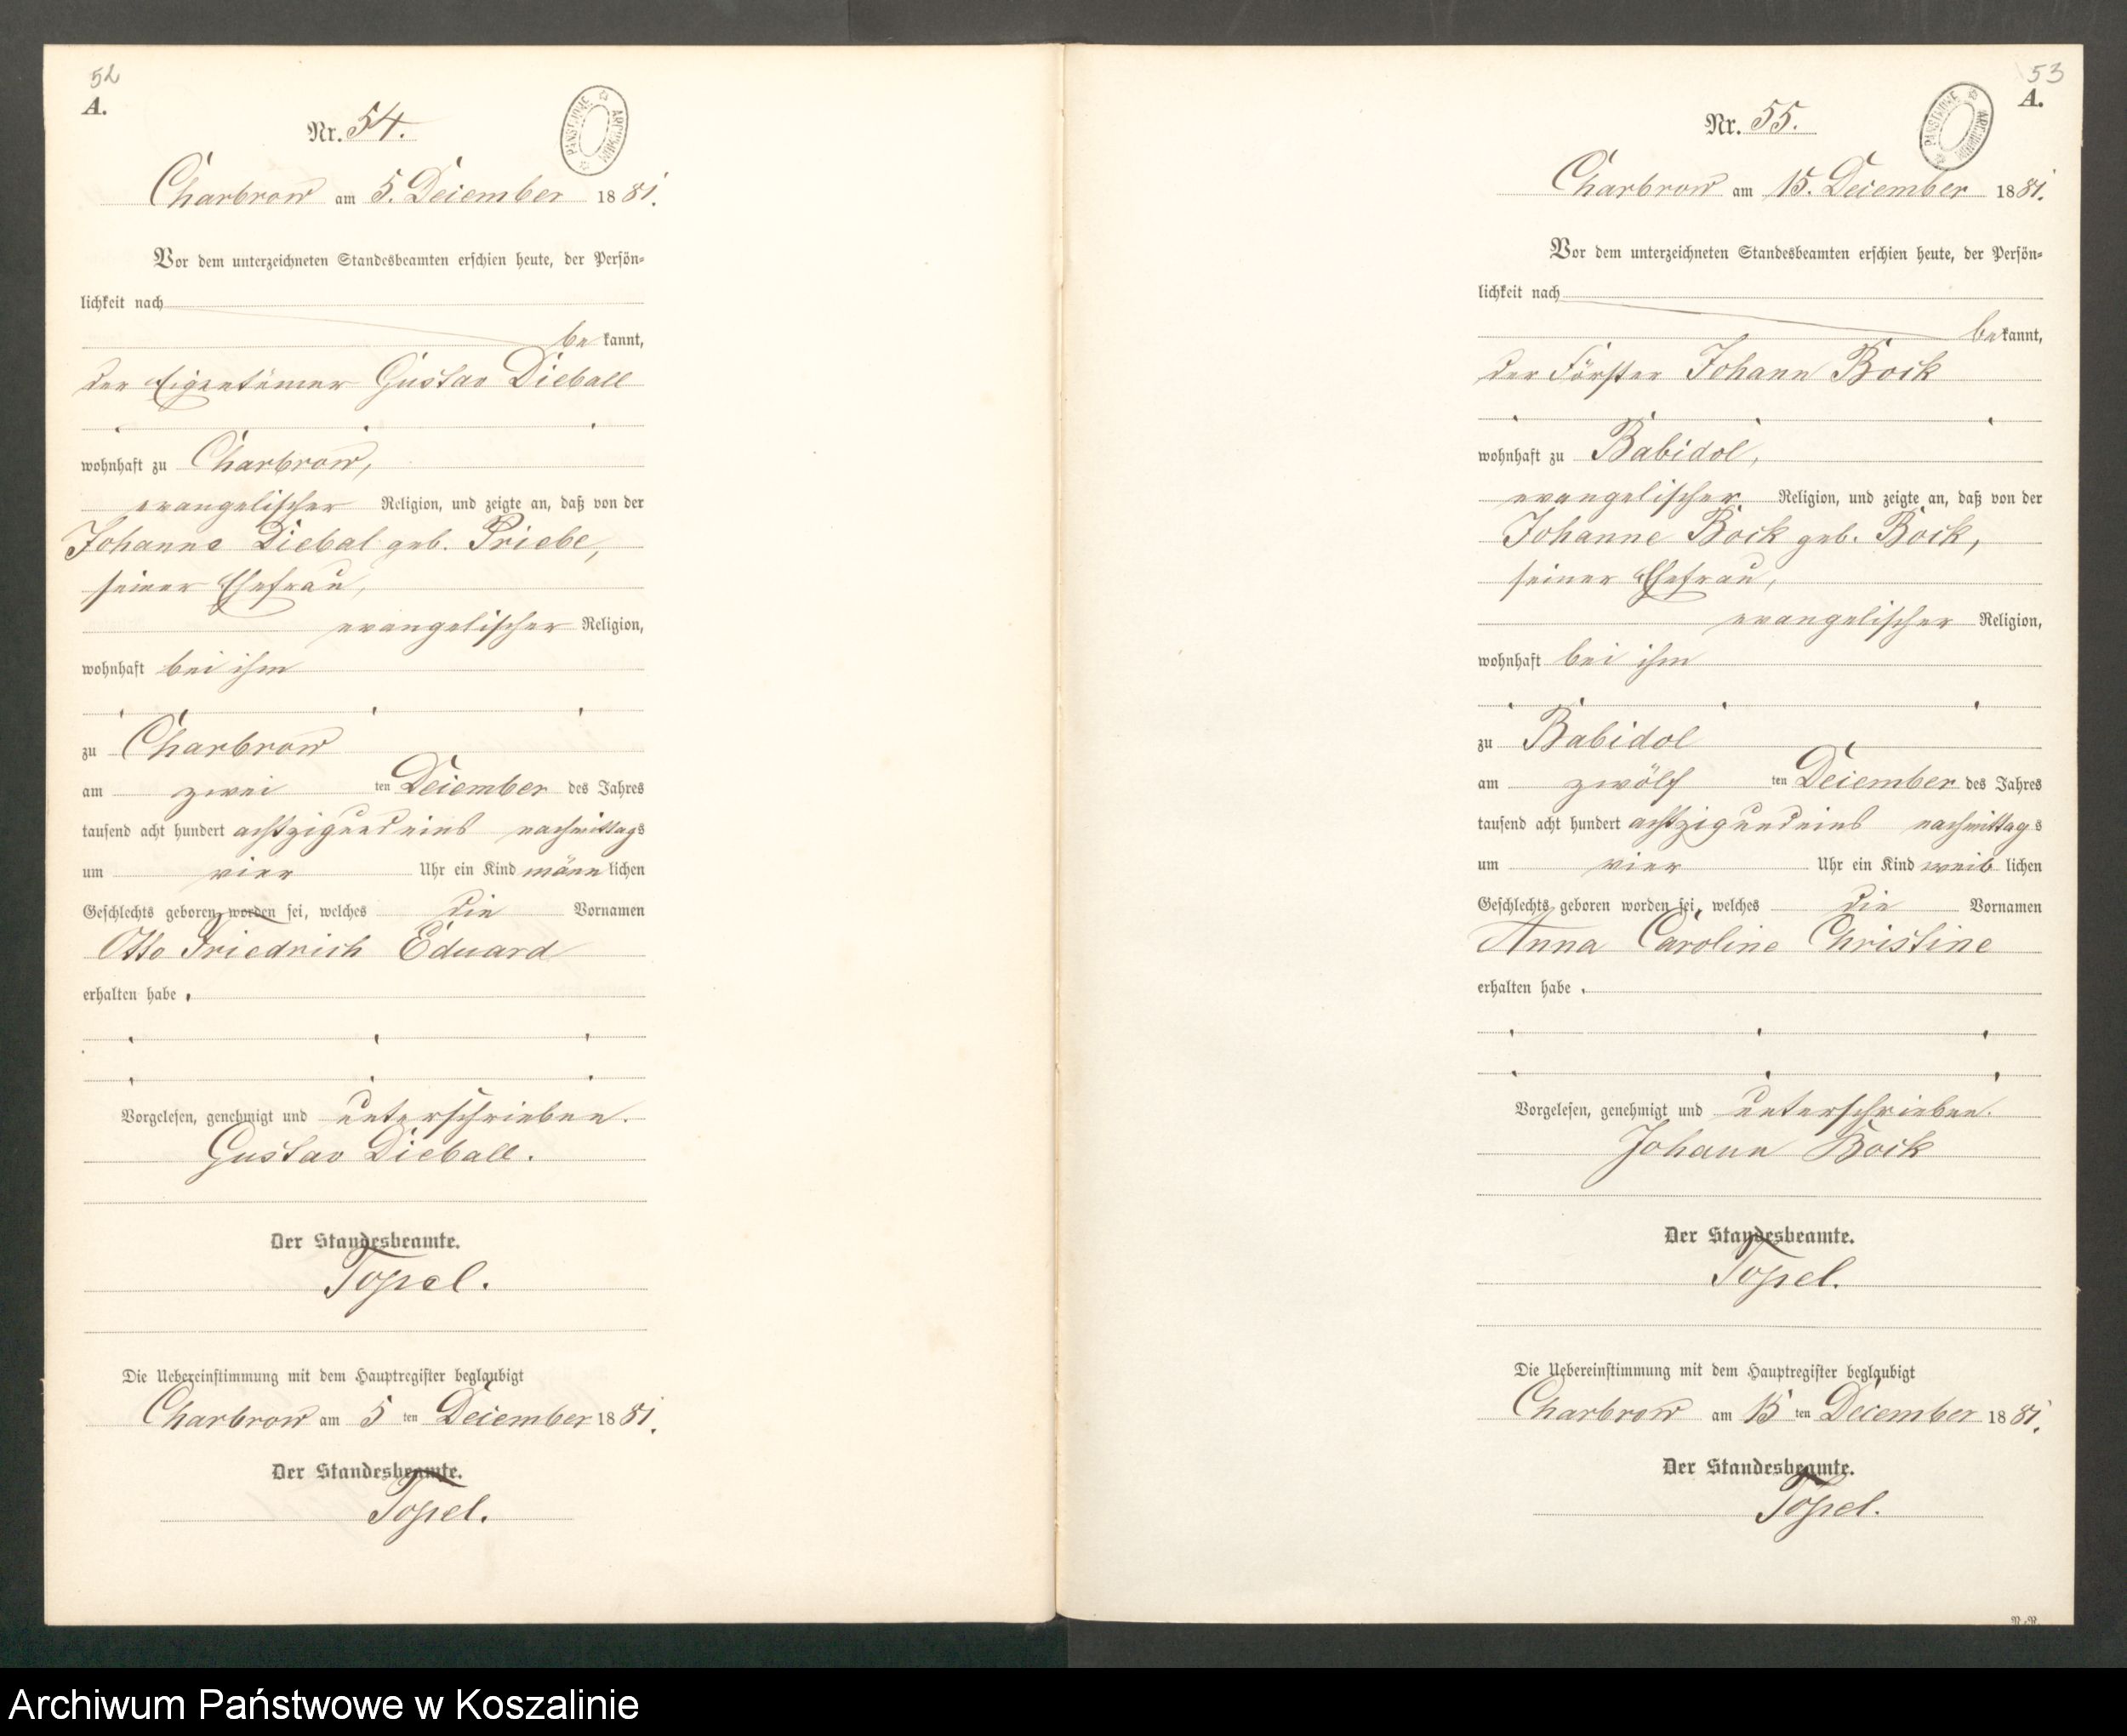 52
A.
Nr. 54.
PAŃSTWOWE ARCHIWUM
Charbrow am 5. December 1881.
Vor dem unterzeichneten Standesbeamten erschien heute, der Persön-
lichkeit nach
bekannt,
der Eigentümer Gustav Dieball
wohnhaft zu Charbrow,
evangelischer Religion, und zeigte an, daß von der
Johanne Diebal geb. Priebe,
seiner Ehefrau,
evangelischer Religion,
wohnhaft bei ihm
zu Charbrow
am zwei ten December des Jahres
tausend acht hundert achtzigundeins nachmittags
um vier Uhr ein Kind männlichen
Geschlechts geboren worden sei, welches die Vornamen
Otto Friedrich Eduard
erhalten habe.
Vorgelesen, genehmigt und unterschrieben.
Gustav Dieball.
Der Standesbeamte.
Topel.
Die Uebereinstimmung mit dem Hauptregister beglaubigt
Charbrow am 5 ten December 1881.
Der Standesbeamte.
Topel.
53
A.
Nr. 55.
PAŃSTWOWE ARCHIWUM
Charbrow am 15. December 1881.
Vor dem unterzeichneten Standesbeamten erschien heute, der Persön-
lichkeit nach
bekannt,
der Förster Johann Bock
wohnhaft zu Babidol,
evangelischer Religion, und zeigte an, daß von der
Johanne Bock geb. Bock,
seiner Ehefrau,
evangelischer Religion,
wohnhaft bei ihm
zu Babidol
am zwölf ten December des Jahres
tausend acht hundert achtzigundeins nachmittags
um vier Uhr ein Kind weiblichen
Geschlechts geboren worden sei, welches die Vornamen
Anna Caroline Christine
erhalten habe.
Vorgelesen, genehmigt und unterschrieben.
Johann Bock
Der Standesbeamte.
Topel.
Die Uebereinstimmung mit dem Hauptregister beglaubigt
Charbrow am 15 ten December 1881.
Der Standesbeamte.
Topel.
Archiwum Państwowe w Koszalinie